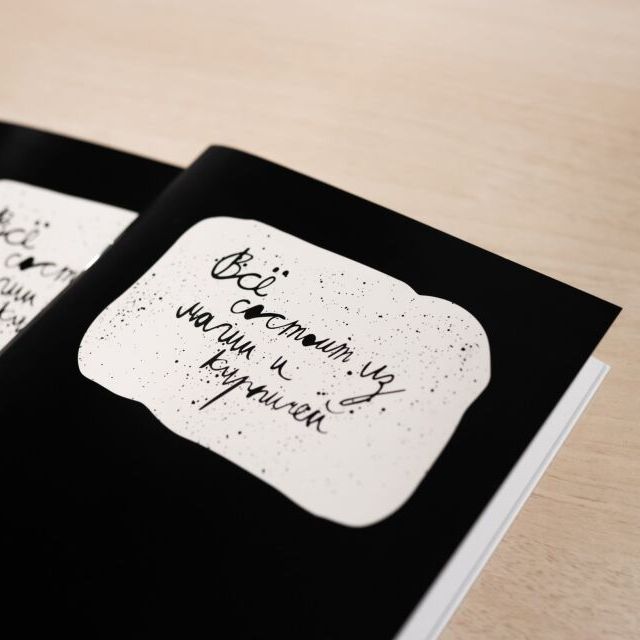 Всё
состоит из
магии и
кирпичей
Всё
сост
магии
ку